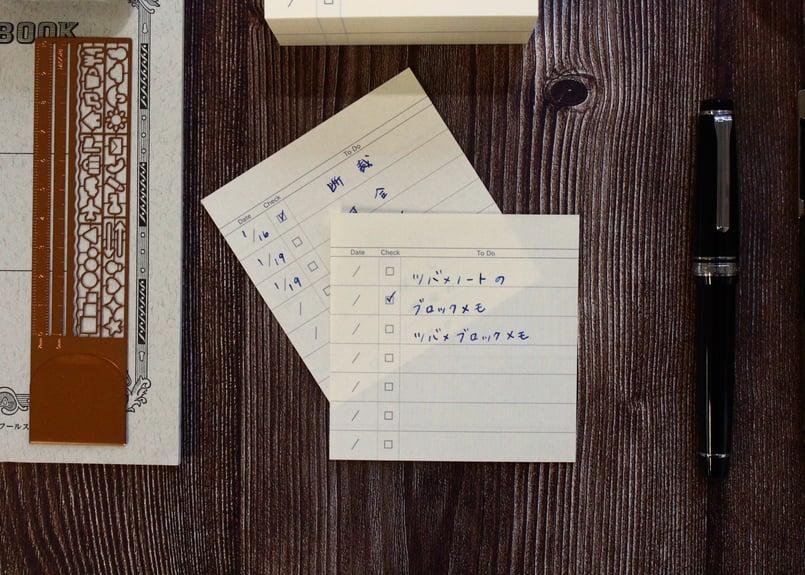 BOOK
Date Check To Do
1/16 断裁
1/19 会
1/19
Date Check To Do
ツバメノートの
ブロックメモ
ツバメブロックメモ